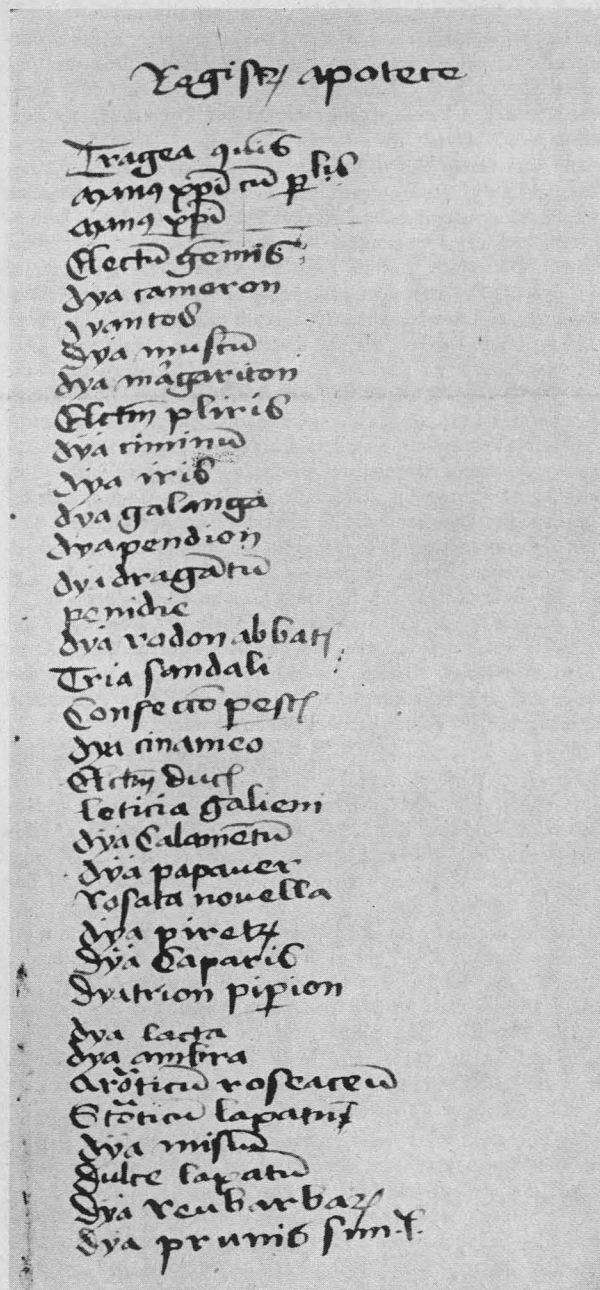 Registrum apotece
Tragea quis
Manus xpi cum perlis
Manus xpi
Electum gemis
dya cameron
yantos
dya muscū
dya margariton
Elctm pliris
dya ciminū
dya iris
dya galanga
dyapendion
dya dragātū
penidie
dya rodon abbatis
Tria sandali
Confectō
dya cinameo
Elctm ducis
leticia galieni
dya Calamētū
dya papaver
Rosata novella
dya piretrum
dya Caparis
dyatrion piperion
dya lacta
dya ambra
Aroāticū roseaceū
Stoāticū lapatiū
dya
dulce laxatū
dya reubarbarum
dya prunis